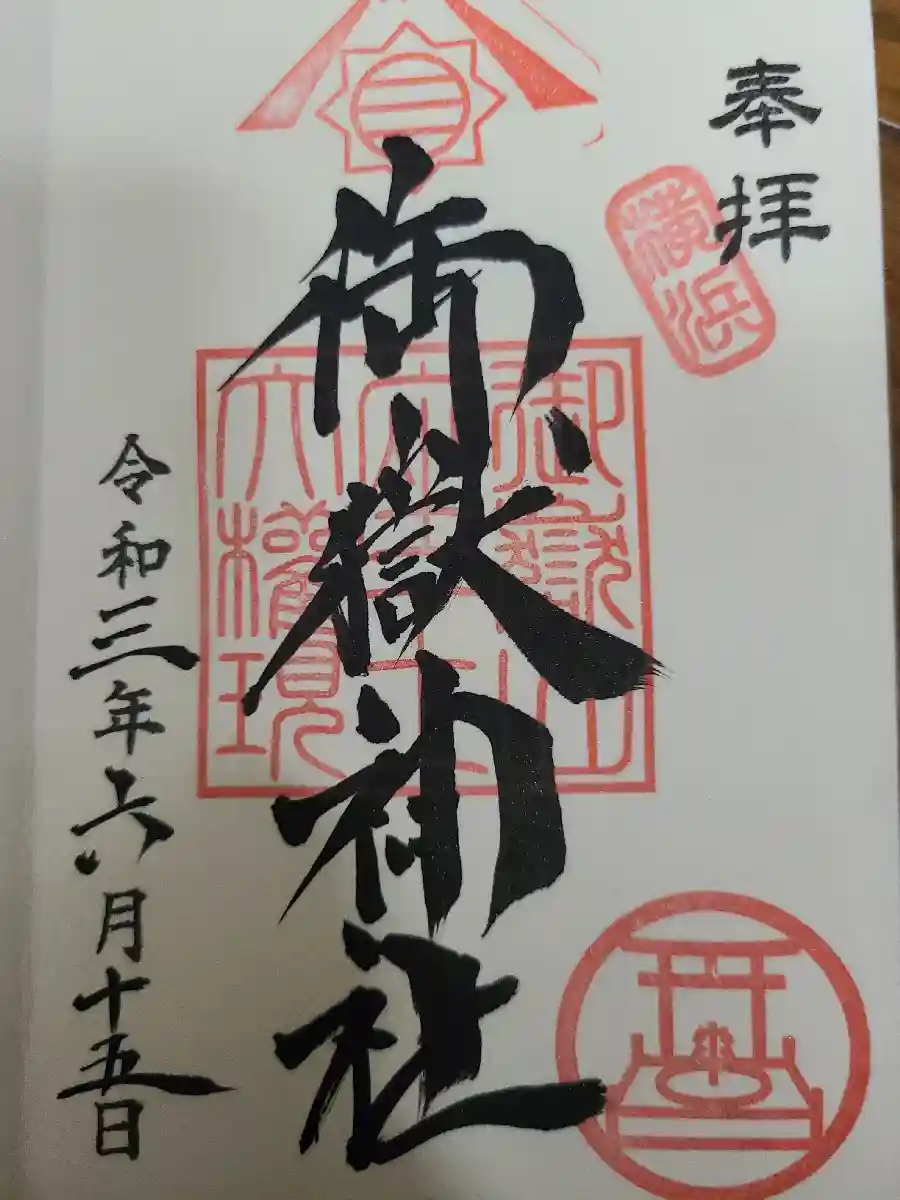 奉拝
横浜
御嶽神社
御嶽山
六權現
令和三年六月十五日